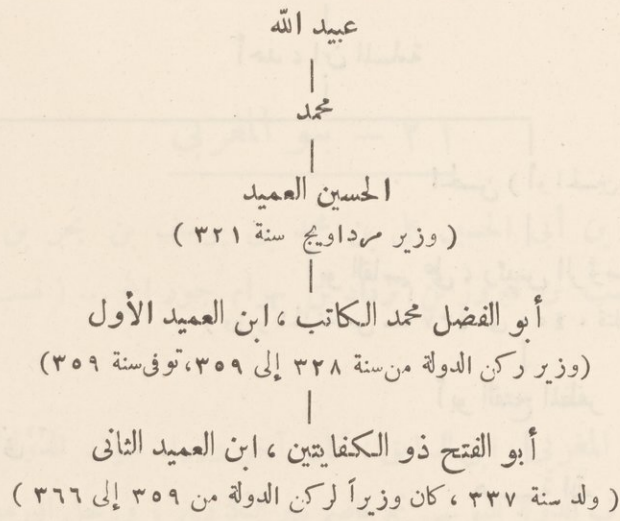 عبيد الله
محمد
الحسين العميد
( وزير مرداويج سنة ٣٢١ )
أبو الفضل محمد الكاتب ، ابن العميد الأول
(وزير ركن الدولة من سنة ٣٢٨ إلى ٣٥٩، توفى سنة ٣٥٩)
أبو الفتح ذو الكفايتين ، ابن العميد الثانى
( ولد سنة ٣٣٧ ، كان وزيراً لركن الدولة من ٣٥٩ إلى ٣٦٦ )